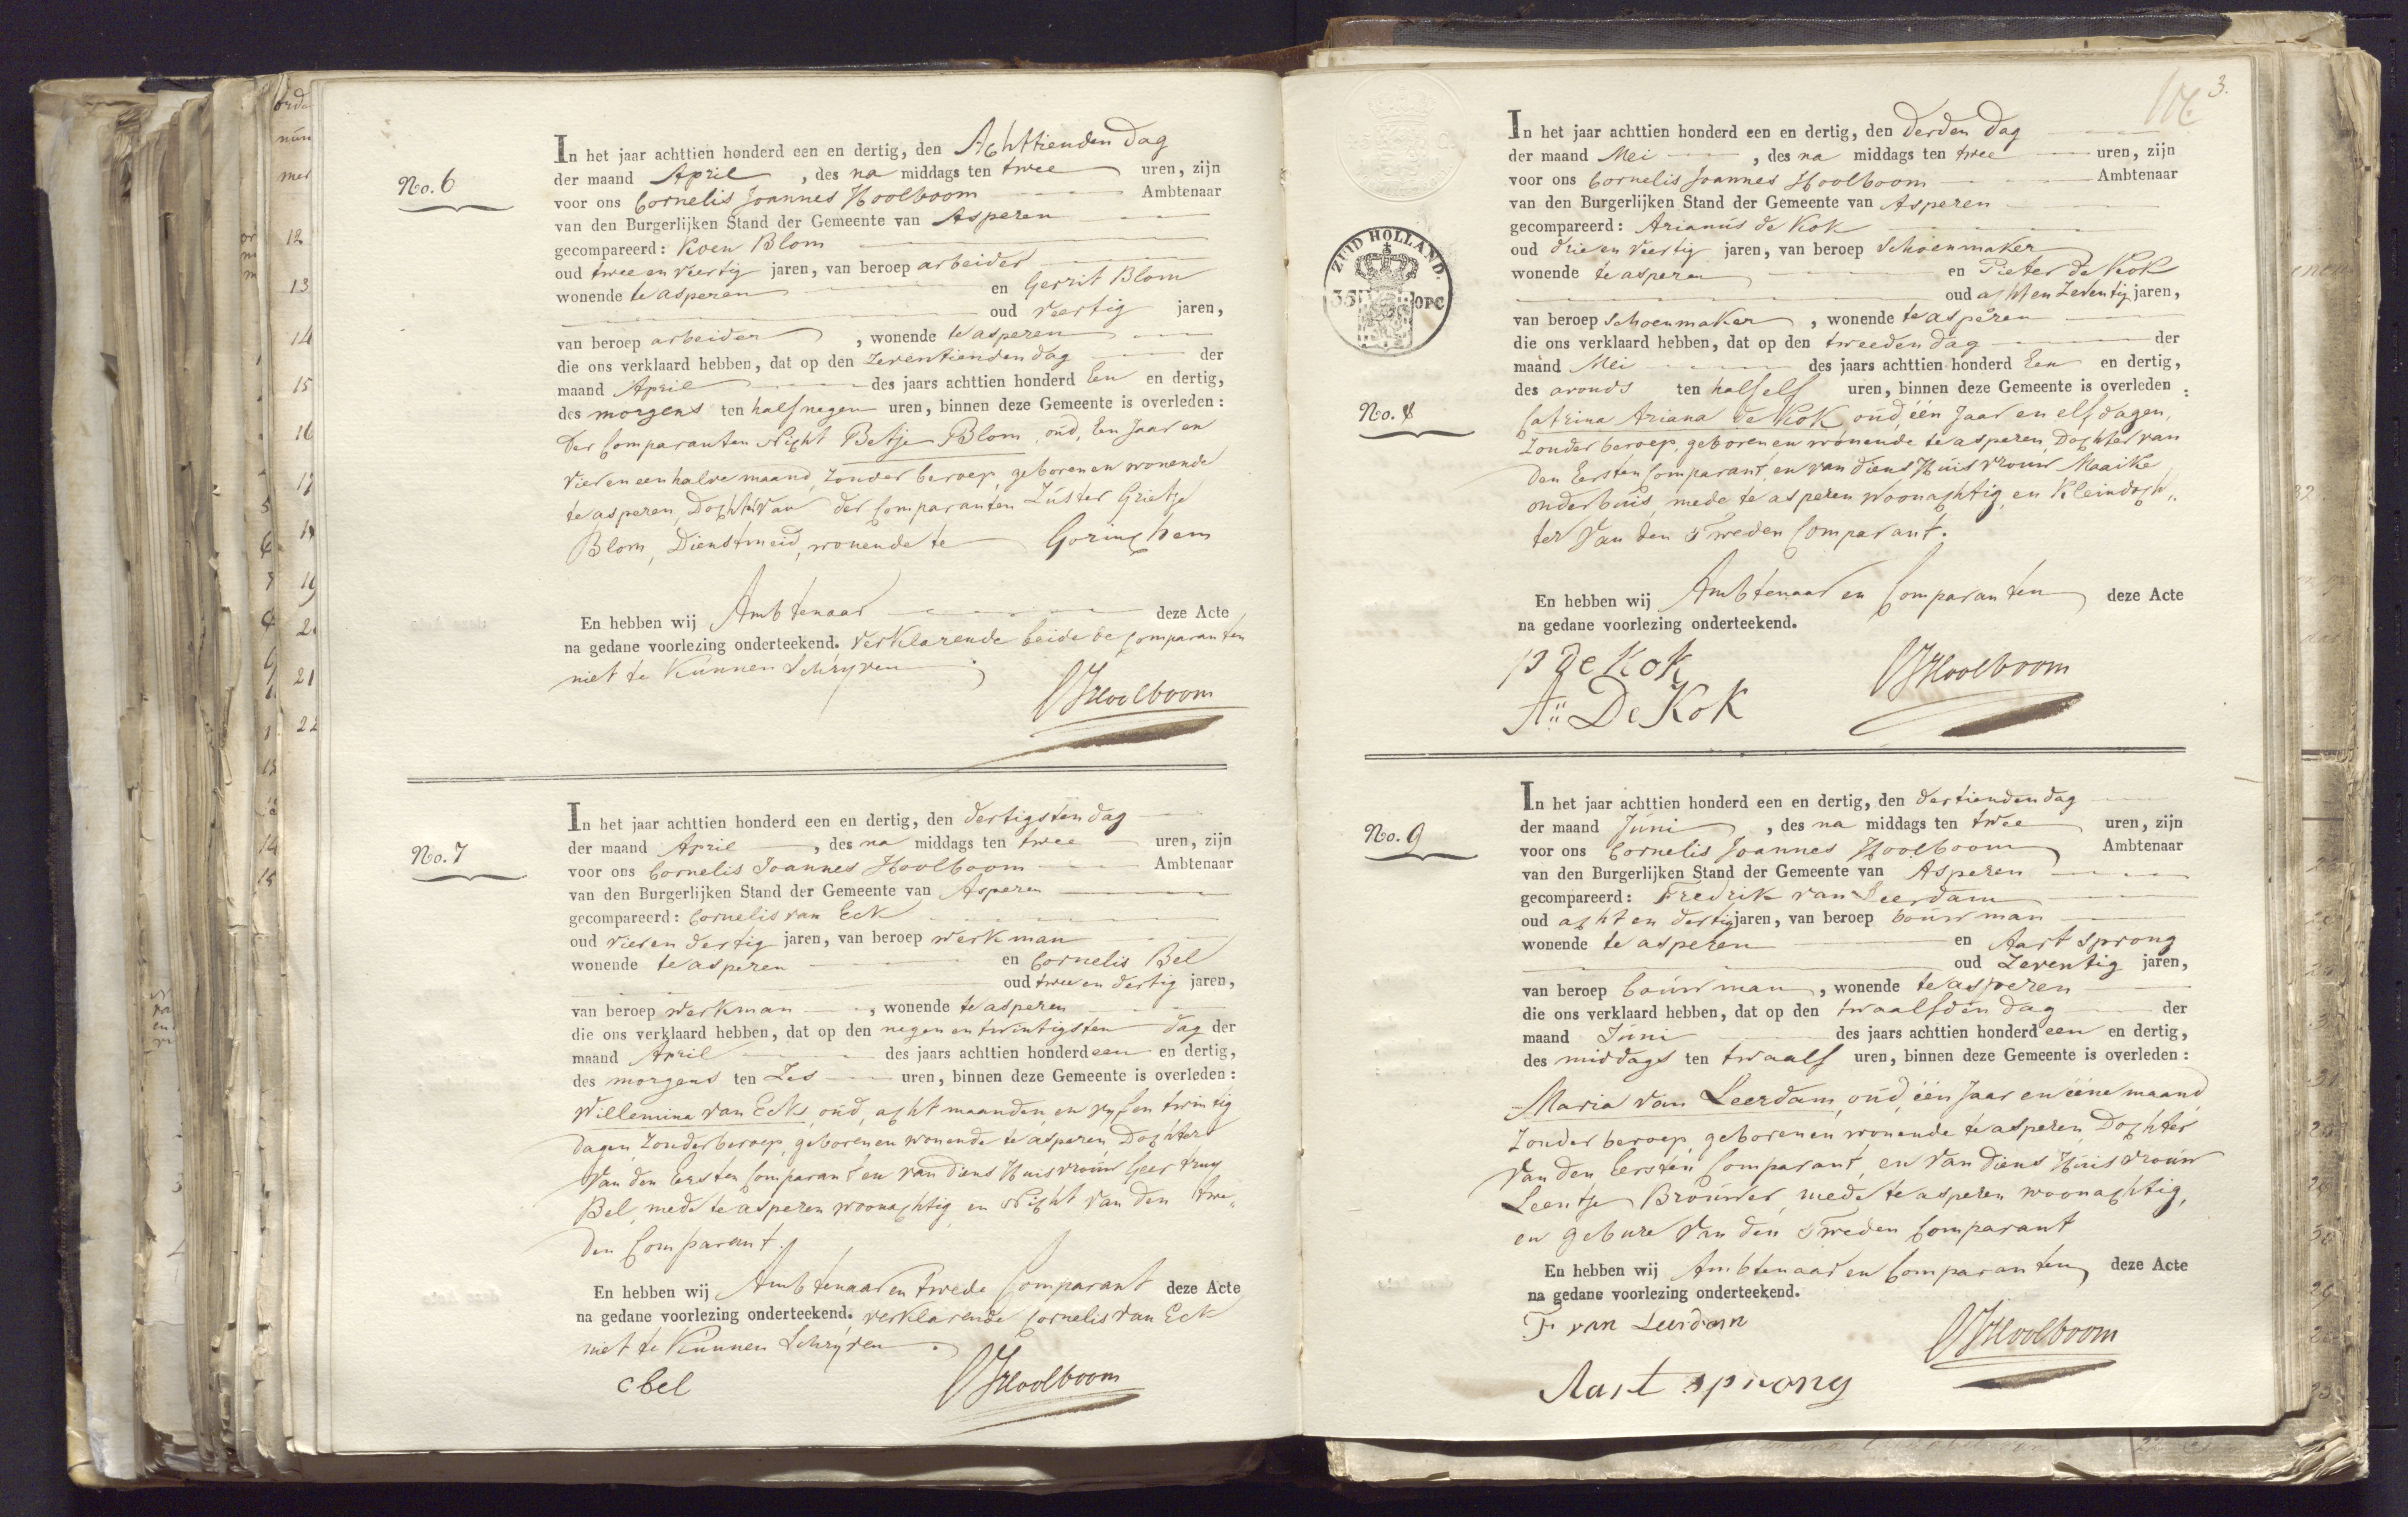 No. 6
In het jaar achttien honderd een en dertig, den Achttienden dag
der maand April , des na middags ten twee uren, zijn
voor ons Cornelis Joannes Hoolboom Ambtenaar
van den Burgerlijken Stand der Gemeente van Asperen
gecompareerd: Koen Blom
oud twee en veertig jaren, van beroep arbeider
wonende te asperen en Gerrit Blom
oud veertig jaren,
van beroep arbeider , wonende te asperen
die ons verklaard hebben, dat op den zeventienden dag der
maand April des jaars achttien honderd Een en dertig,
des morgens ten half negen uren, binnen deze Gemeente is overleden:
der Comparanten Nicht Betje Blom, oud, Een Jaar en
vier en een halve maand, zonder beroep, geboren en wonende
te asperen, Dochter van der Comparanten Zuster Grietje
Blom, Dienstmeid, wonende te Gorinchem
En hebben wij Ambtenaar deze Acte
na gedane voorlezing onderteekend. verklarende beide de Comparanten
niet te Kunnen Schryven.
CJHoolboom
No. 7
In het jaar achttien honderd een en dertig, den dertigsten dag
der maand April , des na middags ten twee uren, zijn
voor ons Cornelis Joannes Hoolboom Ambtenaar
van den Burgerlijken Stand der Gemeente van Asperen
gecompareerd: Cornelis van Eck
oud vier en dertig jaren, van beroep werkman
wonende te asperen en Cornelis Bel
oud twee en dertig jaren,
van beroep werkman , wonende te asperen
die ons verklaard hebben, dat op den negen en twintigsten dag der
maand April des jaars achttien honderd een en dertig,
des morgens ten Zes uren, binnen deze Gemeente is overleden:
Willemina van Eck, oud, acht maanden en vyf en twintig
dagen, zonder beroep, geboren en wonende te asperen, Dochter
van den Eersten Comparant en van diens Huisvrouw Geertruy
Bel, mede te asperen woonachtig en Nicht van den twe„
den Comparant.
En hebben wij Ambtenaar en twede Comparant deze Acte
na gedane voorlezing onderteekend. verklarende Cornelis van Eck
niet te Kunnen Schryven.
c bel CJHoolboom
3.
ZUID HOLLAND.
35 OPC
In het jaar achttien honderd een en dertig, den derden dag
der maand Mei , des na middags ten twee uren, zijn
voor ons Cornelis Joannes Hoolboom Ambtenaar
van den Burgerlijken Stand der Gemeente van Asperen
gecompareerd: Arianus de Kok
oud drie en veertig jaren, van beroep Schoenmaker
wonende te asperen en Pieter de Kok
oud acht en Zeventig jaren,
van beroep Schoenmaker , wonende te asperen
die ons verklaard hebben, dat op den tweeden dag der
maand Mei des jaars achttien honderd Een en dertig,
des avonds ten half elf uren, binnen deze Gemeente is overleden:
No. 8
Catrina Ariana de Kok, oud, één Jaar en elf dagen,
zonder beroep, geboren en wonende te asperen, Dochter van
den Eersten Comparant, en van diens Huisvrouw Maaike
onderbuis, mede te asperen woonachtig, en Kleindoch„
ter van den Tweden Comparant.
En hebben wij Ambtenaar en Comparanten deze Acte
na gedane voorlezing onderteekend.
P de Kok CJHoolboom
A" De Kok
No. 9
In het jaar achttien honderd een en dertig, den dertienden dag
der maand Juni , des na middags ten twee uren, zijn
voor ons Cornelis Joannes Hoolboom Ambtenaar
van den Burgerlijken Stand der Gemeente van Asperen
gecompareerd: Fredrik van Leerdam
oud acht en dertig jaren, van beroep bouwman
wonende te asperen en Aart Sprong
oud Zeventig jaren,
van beroep bouwman , wonende te asperen
die ons verklaard hebben, dat op den twaalfden dag der
maand Juni des jaars achttien honderd een en dertig,
des middags ten twaalf uren, binnen deze Gemeente is overleden:
Maria van Leerdam, oud, één Jaar en ééne maand
zonder beroep, geboren en wonende te asperen, Dochter
van den Eersten Comparant, en van diens Huisvrouw
Leentje Brouwer, mede te asperen woonachtig,
en gebure van den Tweden Comparant
En hebben wij Ambtenaar en Comparanten deze Acte
na gedane voorlezing onderteekend.
F van Leerdam CJHoolboom
Aart sprong